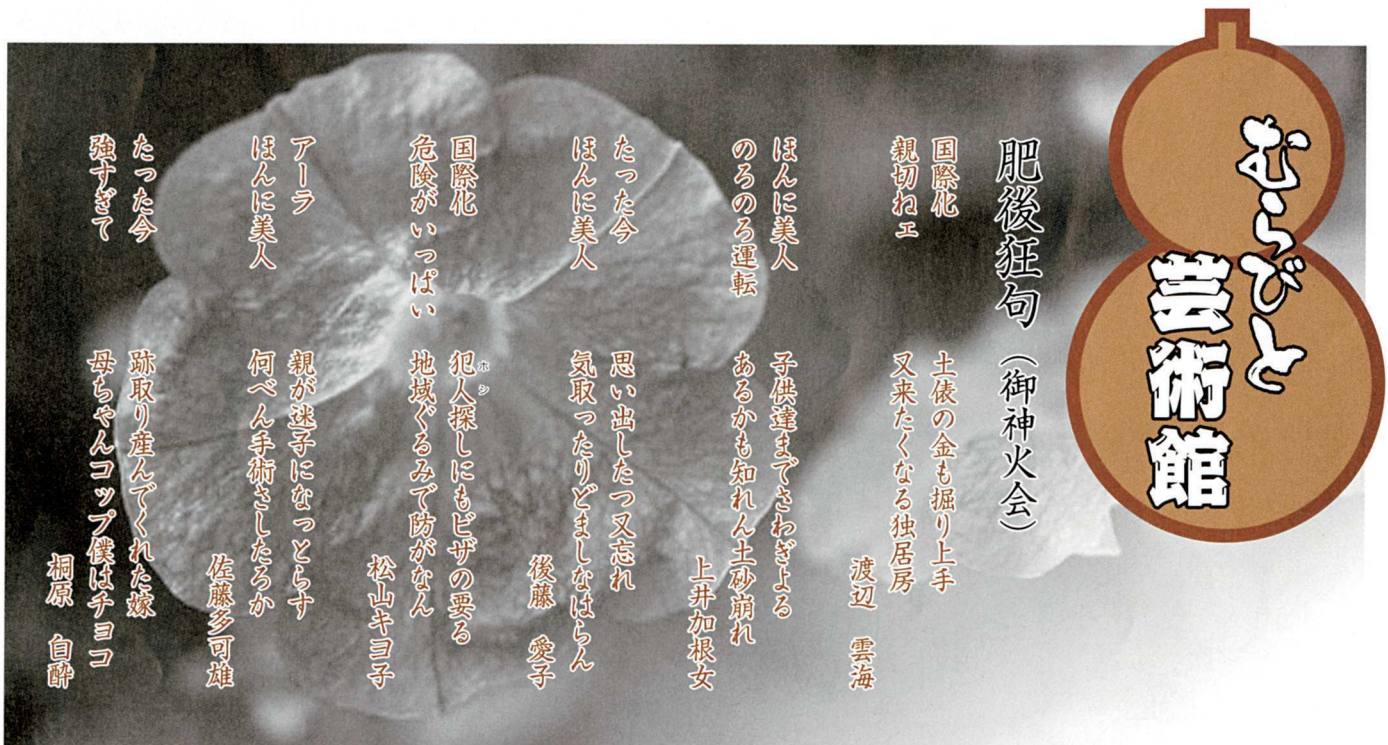 むらびと
芸術館
肥後狂句（御神火会）
国際化　土俵の金も掘り上手
親切ねェ　又来たくなる独居房
渡辺　雲海
ほんに美人　子供達までさわぎよる
のろのろ運転　あるかも知れん土砂崩れ
上井加根女
たった今　思い出したつ又忘れ
ほんに美人　気取ったりどましなはらん
後藤　愛子
国際化　犯人探しにもビザの要る
ホシ
危険がいっぱい　地域ぐるみで防がなん
松山キヨ子
アーラ　親が迷子になっとらす
ほんに美人　何べん手術さしたろか
佐藤多可雄
たった今　跡取り産んでくれた嫁
強すぎて　母ちゃんコップ僕はチョコ
桐原　白酔